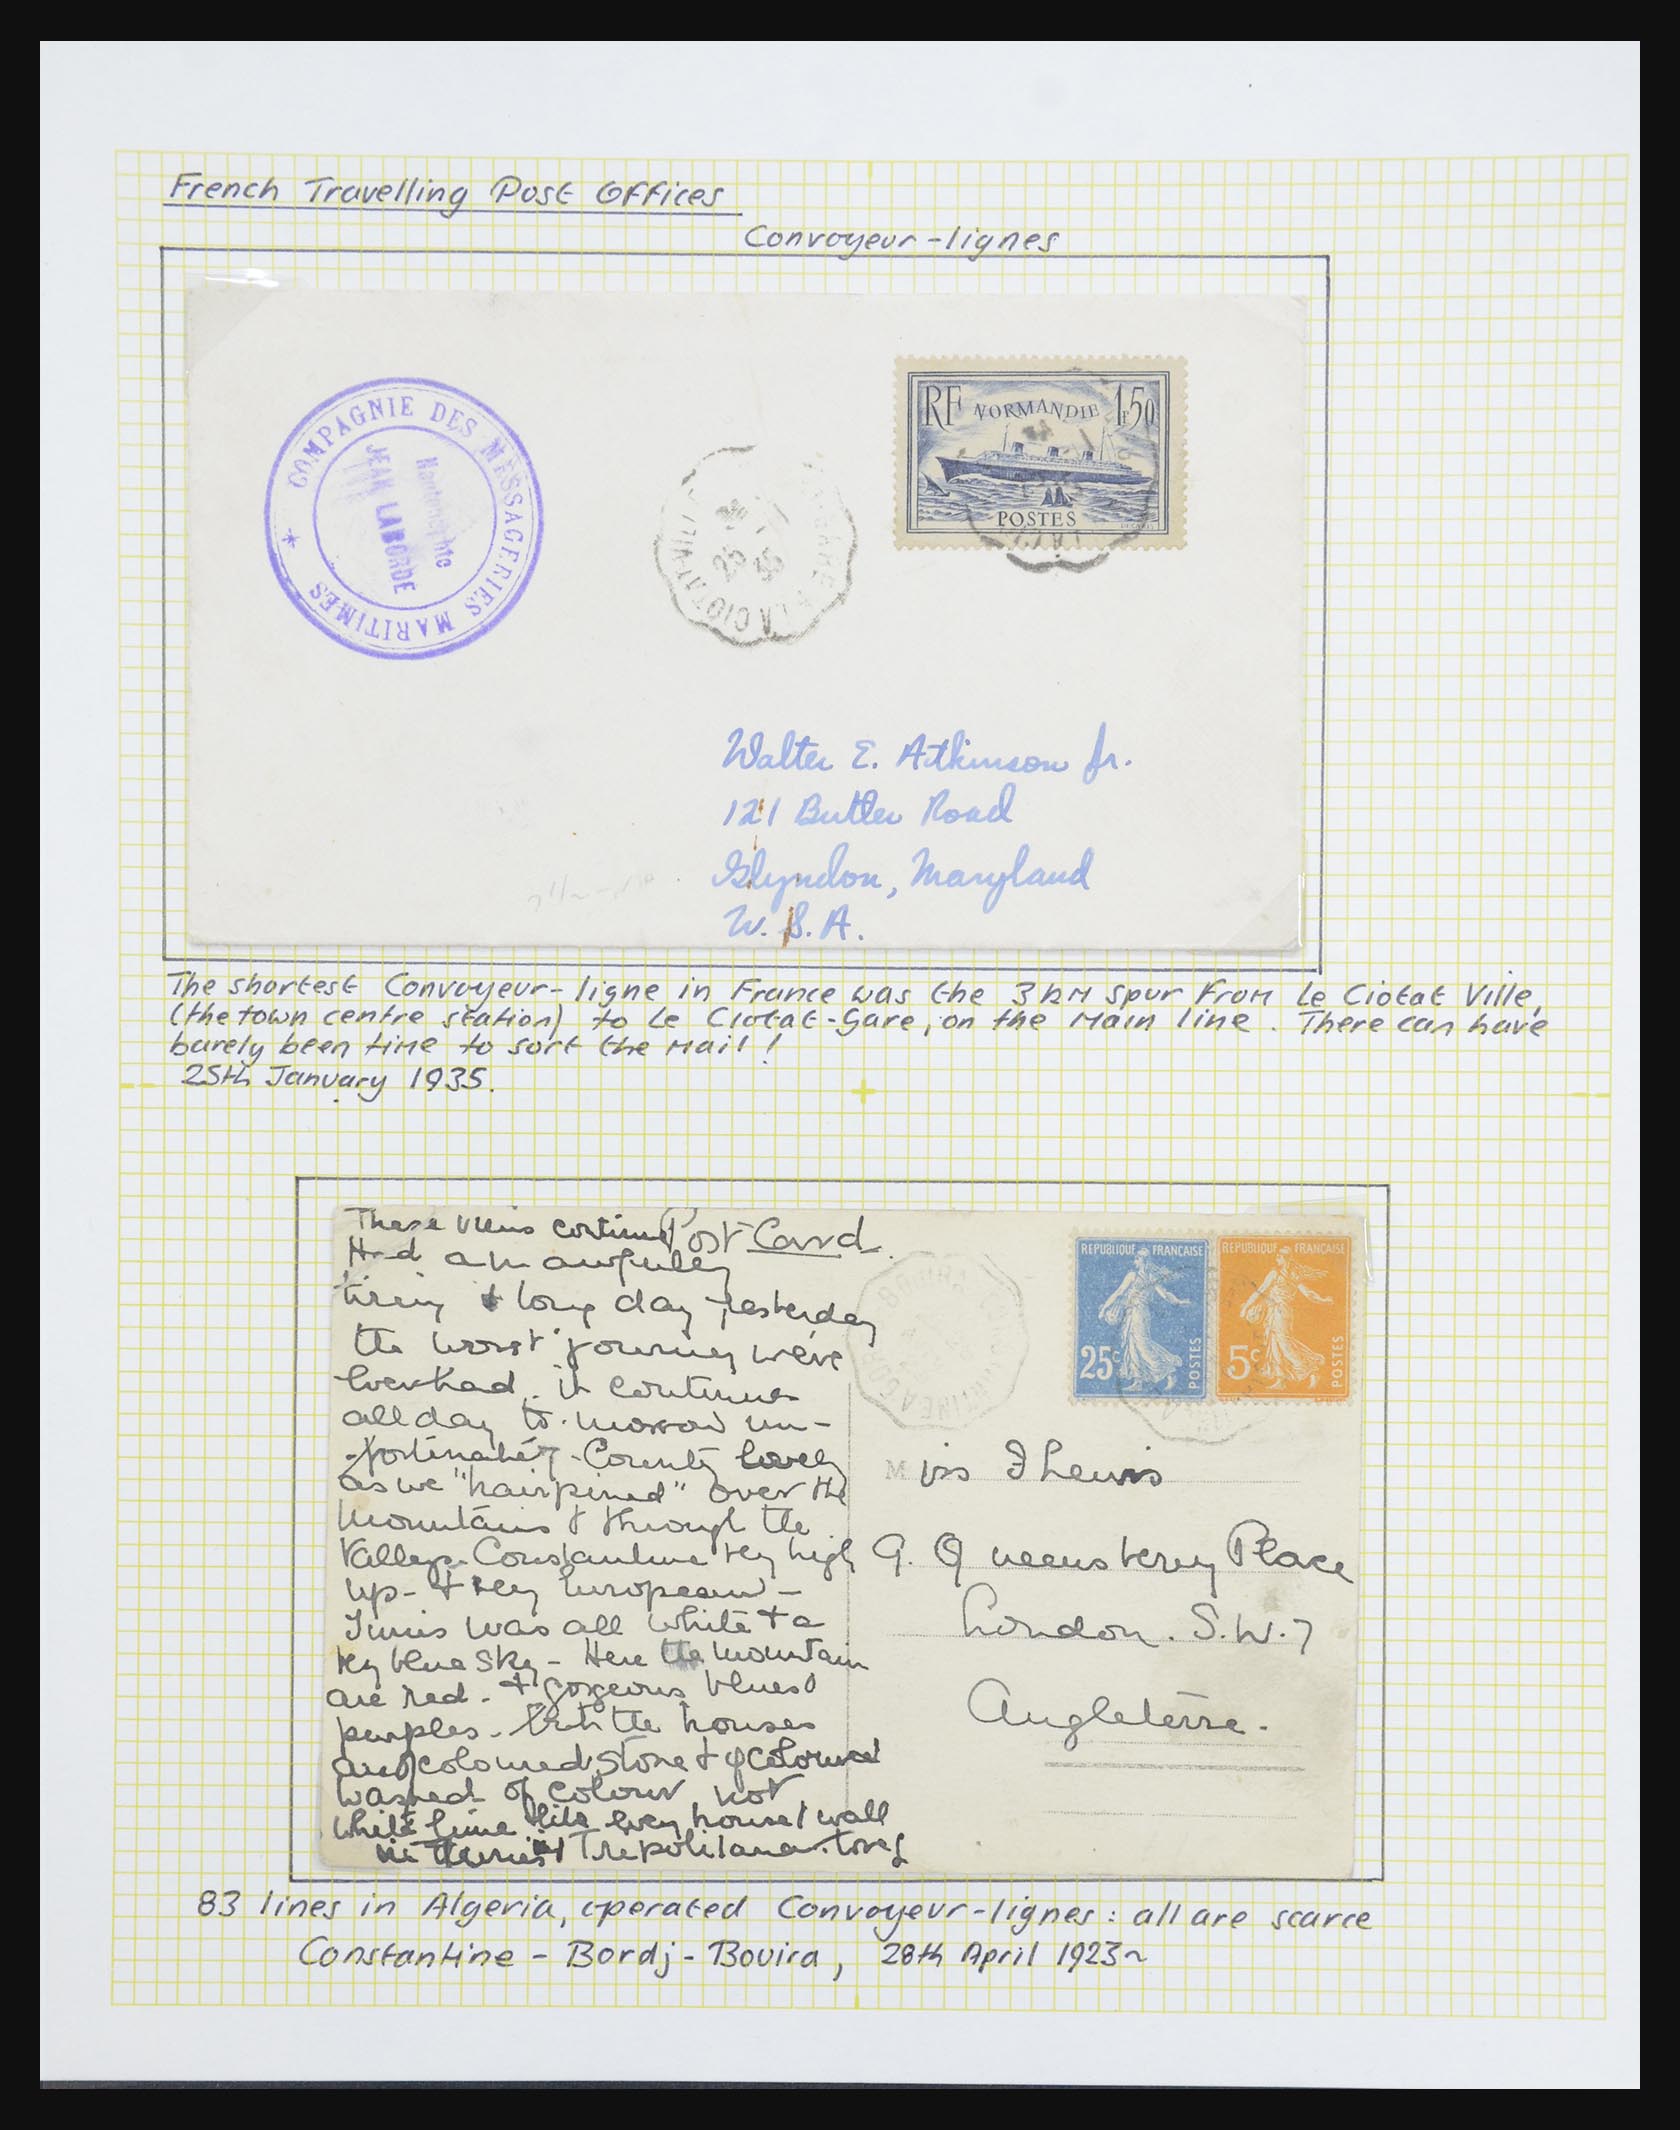 French Travelling Post Offices
Convoyeur-lignes
COMPAGNIE DES MESSAGERIES MARITIMES
JEAN LABORDE
LA CIOTAT-
25
35
RF NORMANDIE 1f50
POSTES
Walter E. Atkinson Jr.
121 Butler Road
Glyndon, Maryland
U.S.A.
The shortest Convoyeur-ligne in France was the 3km spur from Le Ciotat Ville,
(the town centre station) to Le Ciotat-Gare, on the main line. There can have
barely been time to sort the mail!
25th January 1935.
Post Card
These views continue
Had an awfully
tiring & long day yesterday
the worst journey we've
ever had. it continues
all day to-morrow un-
-fortunately. Country lovely
as we "hairpined" over the
mountains & through the
Valleys. Constantine very high
up - & very European -
Tunis was all white & a
very blue sky - Here the mountain
are red. & gorgeous blues
purples. But the houses
are of coloured stone & of coloured
washed of colour not
white lime like every house & wall
in Tunis & Tripolitana.
REPUBLIQUE FRANÇAISE
25c
POSTES
REPUBLIQUE FRANÇAISE
5c
POSTES
Miss I Lewis
9. Queensberry Place
London. S.W.7
Angleterre.
83 lines in Algeria, operated Convoyeur-lignes: all are scarce
Constantine - Bordj - Bouira, 28th April 1923~